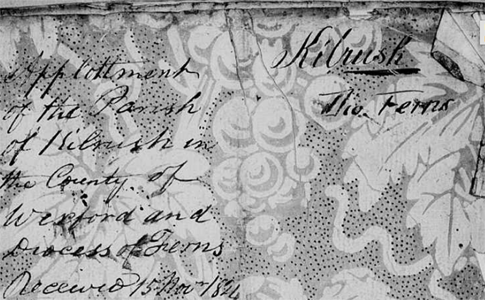 Applottment
of the Parish
of Kilrush in
the County of
Wexford and
Diocess of Ferns
Received 15 Novr 1824
Kilrush
Dio. Ferns